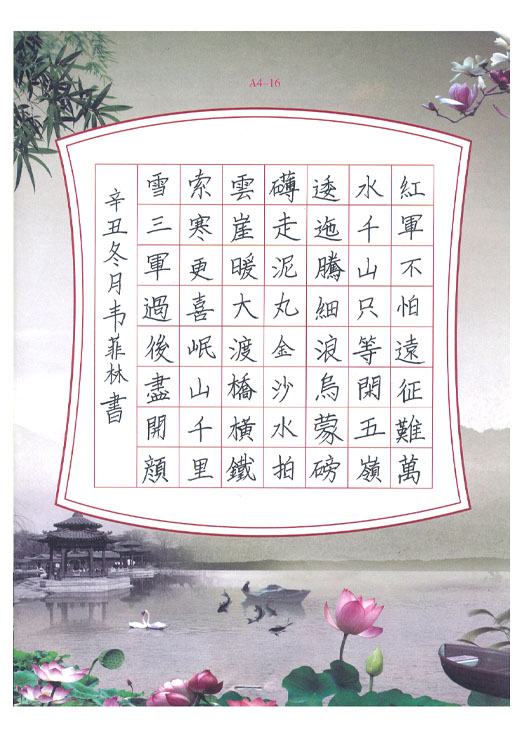 A4-16
紅軍不怕遠征難萬
水千山只等閑五嶺
逶迤騰細浪烏蒙磅
礴走泥丸金沙水拍
雲崖暖大渡橋橫鐵
索寒更喜岷山千里
雪三軍過後盡開顔
辛丑冬月韦菲林書